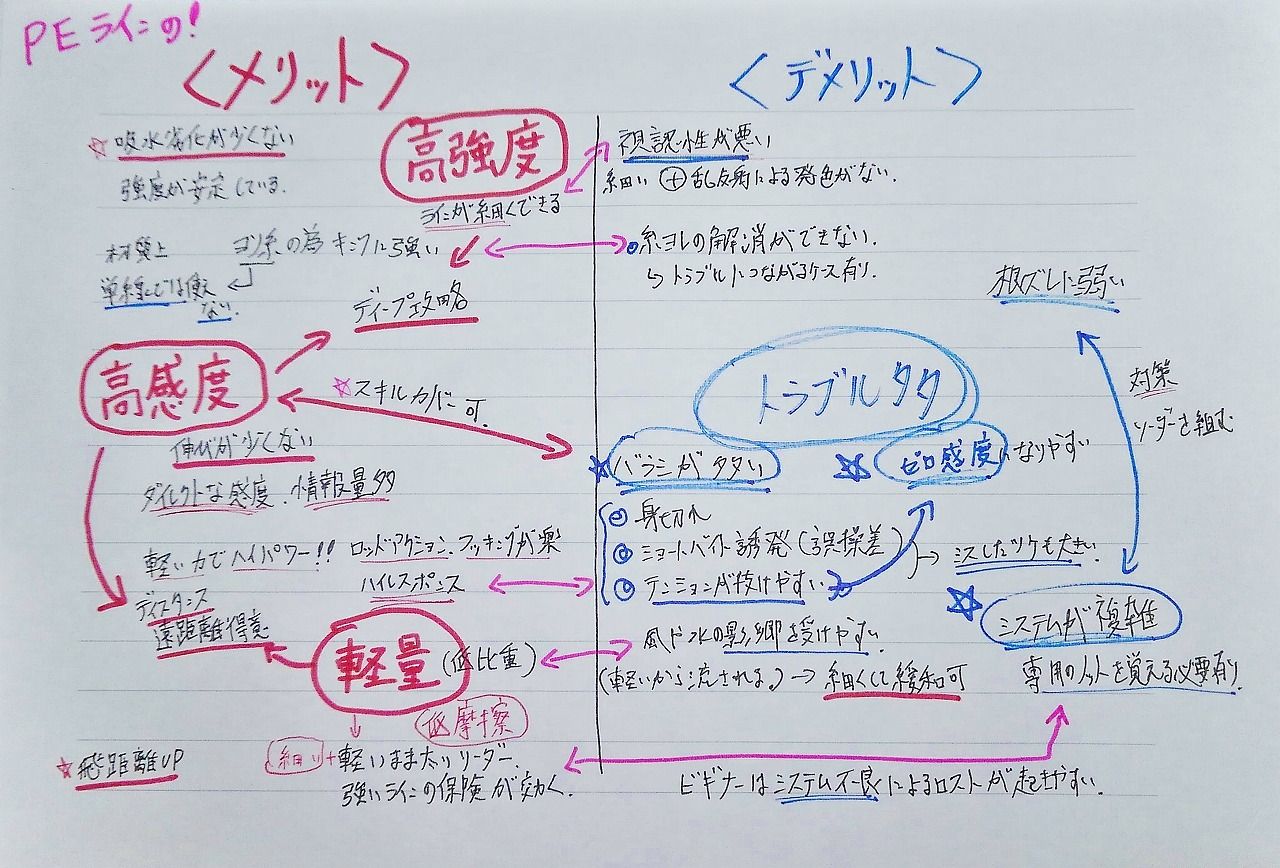 PEラインの!
<メリット>
☆吸水劣化が少くない
強度が安定している.
高強度
ラインが細くできる
材質上
ヨリ糸の為キンクに強い
単線では使え
ない.
ディープ攻略
高感度
☆スキルカバー可
伸びが少くない
ダイレクトな感度.情報量多
軽い力でハイパワー!! ロッドアクション、フッキングが楽
ハイレスポンス
ディスタンス
遠距離得意
軽量(低比重)
低摩擦
細い+軽いまま太いリーダー.
強いラインの保険が効く.
☆飛距離UP
<デメリット>
視認性が悪い
細い+乱反射による発色がない.
糸ヨレの解消ができない.
↳トラブルにつながるケース有り.
根ズレに弱い
トラブルタタ
対策
リーダーを組む
☆バラシがタタい
☆ゼロ感度になりやすい
身切れ
ショートバイト誘発(誤操差)
テンションが抜けやすい
→ミスしたツケも大きい.
☆システムが複雑
専用のノットを覚える必要有り.
風ド水の影郷を受けやすい.
(軽いから流される。)→細くして緩和可
ビギナーはシステム不良によるロストが起きやすい.